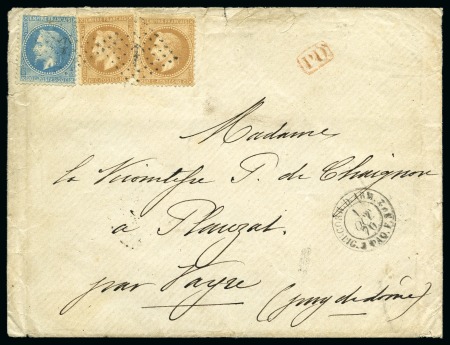 EMPIRE FRANÇAIS
P.D.
Madame
la Vicomtesse P. de Chaignon
à Plauzat
par Vayre (puy de dôme)